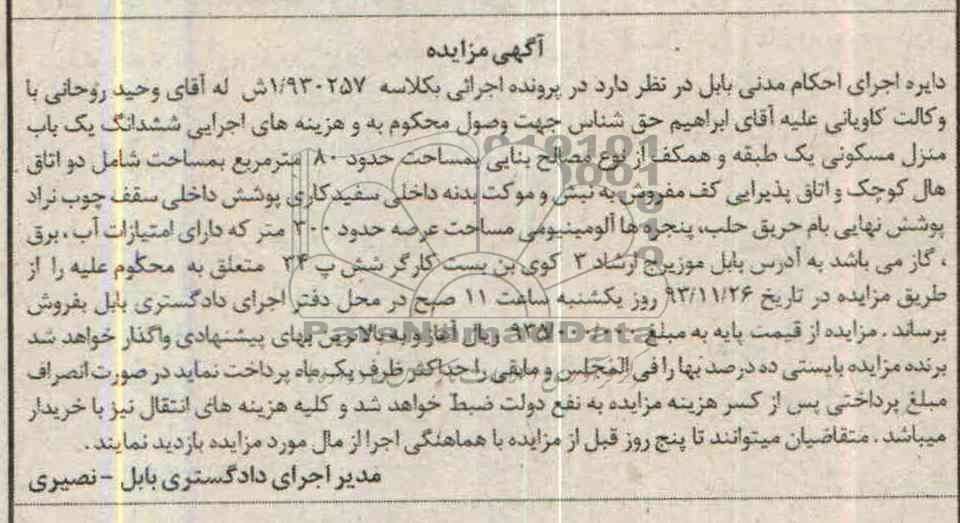 آگهی مزایده
دایره اجرای احکام مدنی بابل در نظر دارد در پرونده اجرائی بکلاسه ۱/۹۳۰۲۵۷ش له آقای وحید روحانی با
وکالت کاویانی علیه آقای ابراهیم حق شناس جهت وصول محکوم به و هزینه های اجرایی ششدانگ یک باب
منزل مسکونی یک طبقه و همکف از نوع مصالح بنایی بمساحت حدود ۸۰ مترمربع بمساحت شامل دو اتاق
هال کوچک و اتاق پذیرایی کف مفروش به نبش و موکت بدنه داخلی سفیدکاری پوشش داخلی سقف چوب نراد
پوشش نهایی بام حریق حلب، پنجره ها آلومینیومی مساحت عرصه حدود ۳۰۰ متر که دارای امتیازات آب ، برق
، گاز می باشد به آدرس بابل موزیرج ارشاد ۳ کوی بن بست کارگر شش پ ۲۴ متعلق به محکوم علیه را از
طریق مزایده در تاریخ ۹۳/۱۱/۲۶ روز یکشنبه ساعت ۱۱ صبح در محل دفتر اجرای دادگستری بابل بفروش
برساند . مزایده از قیمت پایه به مبلغ ریال آغاز و به بالاترین بهای پیشنهادی واگذار خواهد شد
برنده مزایده بایستی ده درصد بها را فی المجلس و مابقی را حداکثر ظرف یک ماه پرداخت نماید در صورت انصراف
مبلغ پرداختی پس از کسر هزینه مزایده به نفع دولت ضبط خواهد شد و کلیه هزینه های انتقال نیز با خریدار
میباشد . متقاضیان میتوانند تا پنج روز قبل از مزایده با هماهنگی اجرا از مال مورد مزایده بازدید نمایند .
مدیر اجرای دادگستری بابل – نصیری
ParsNamadData